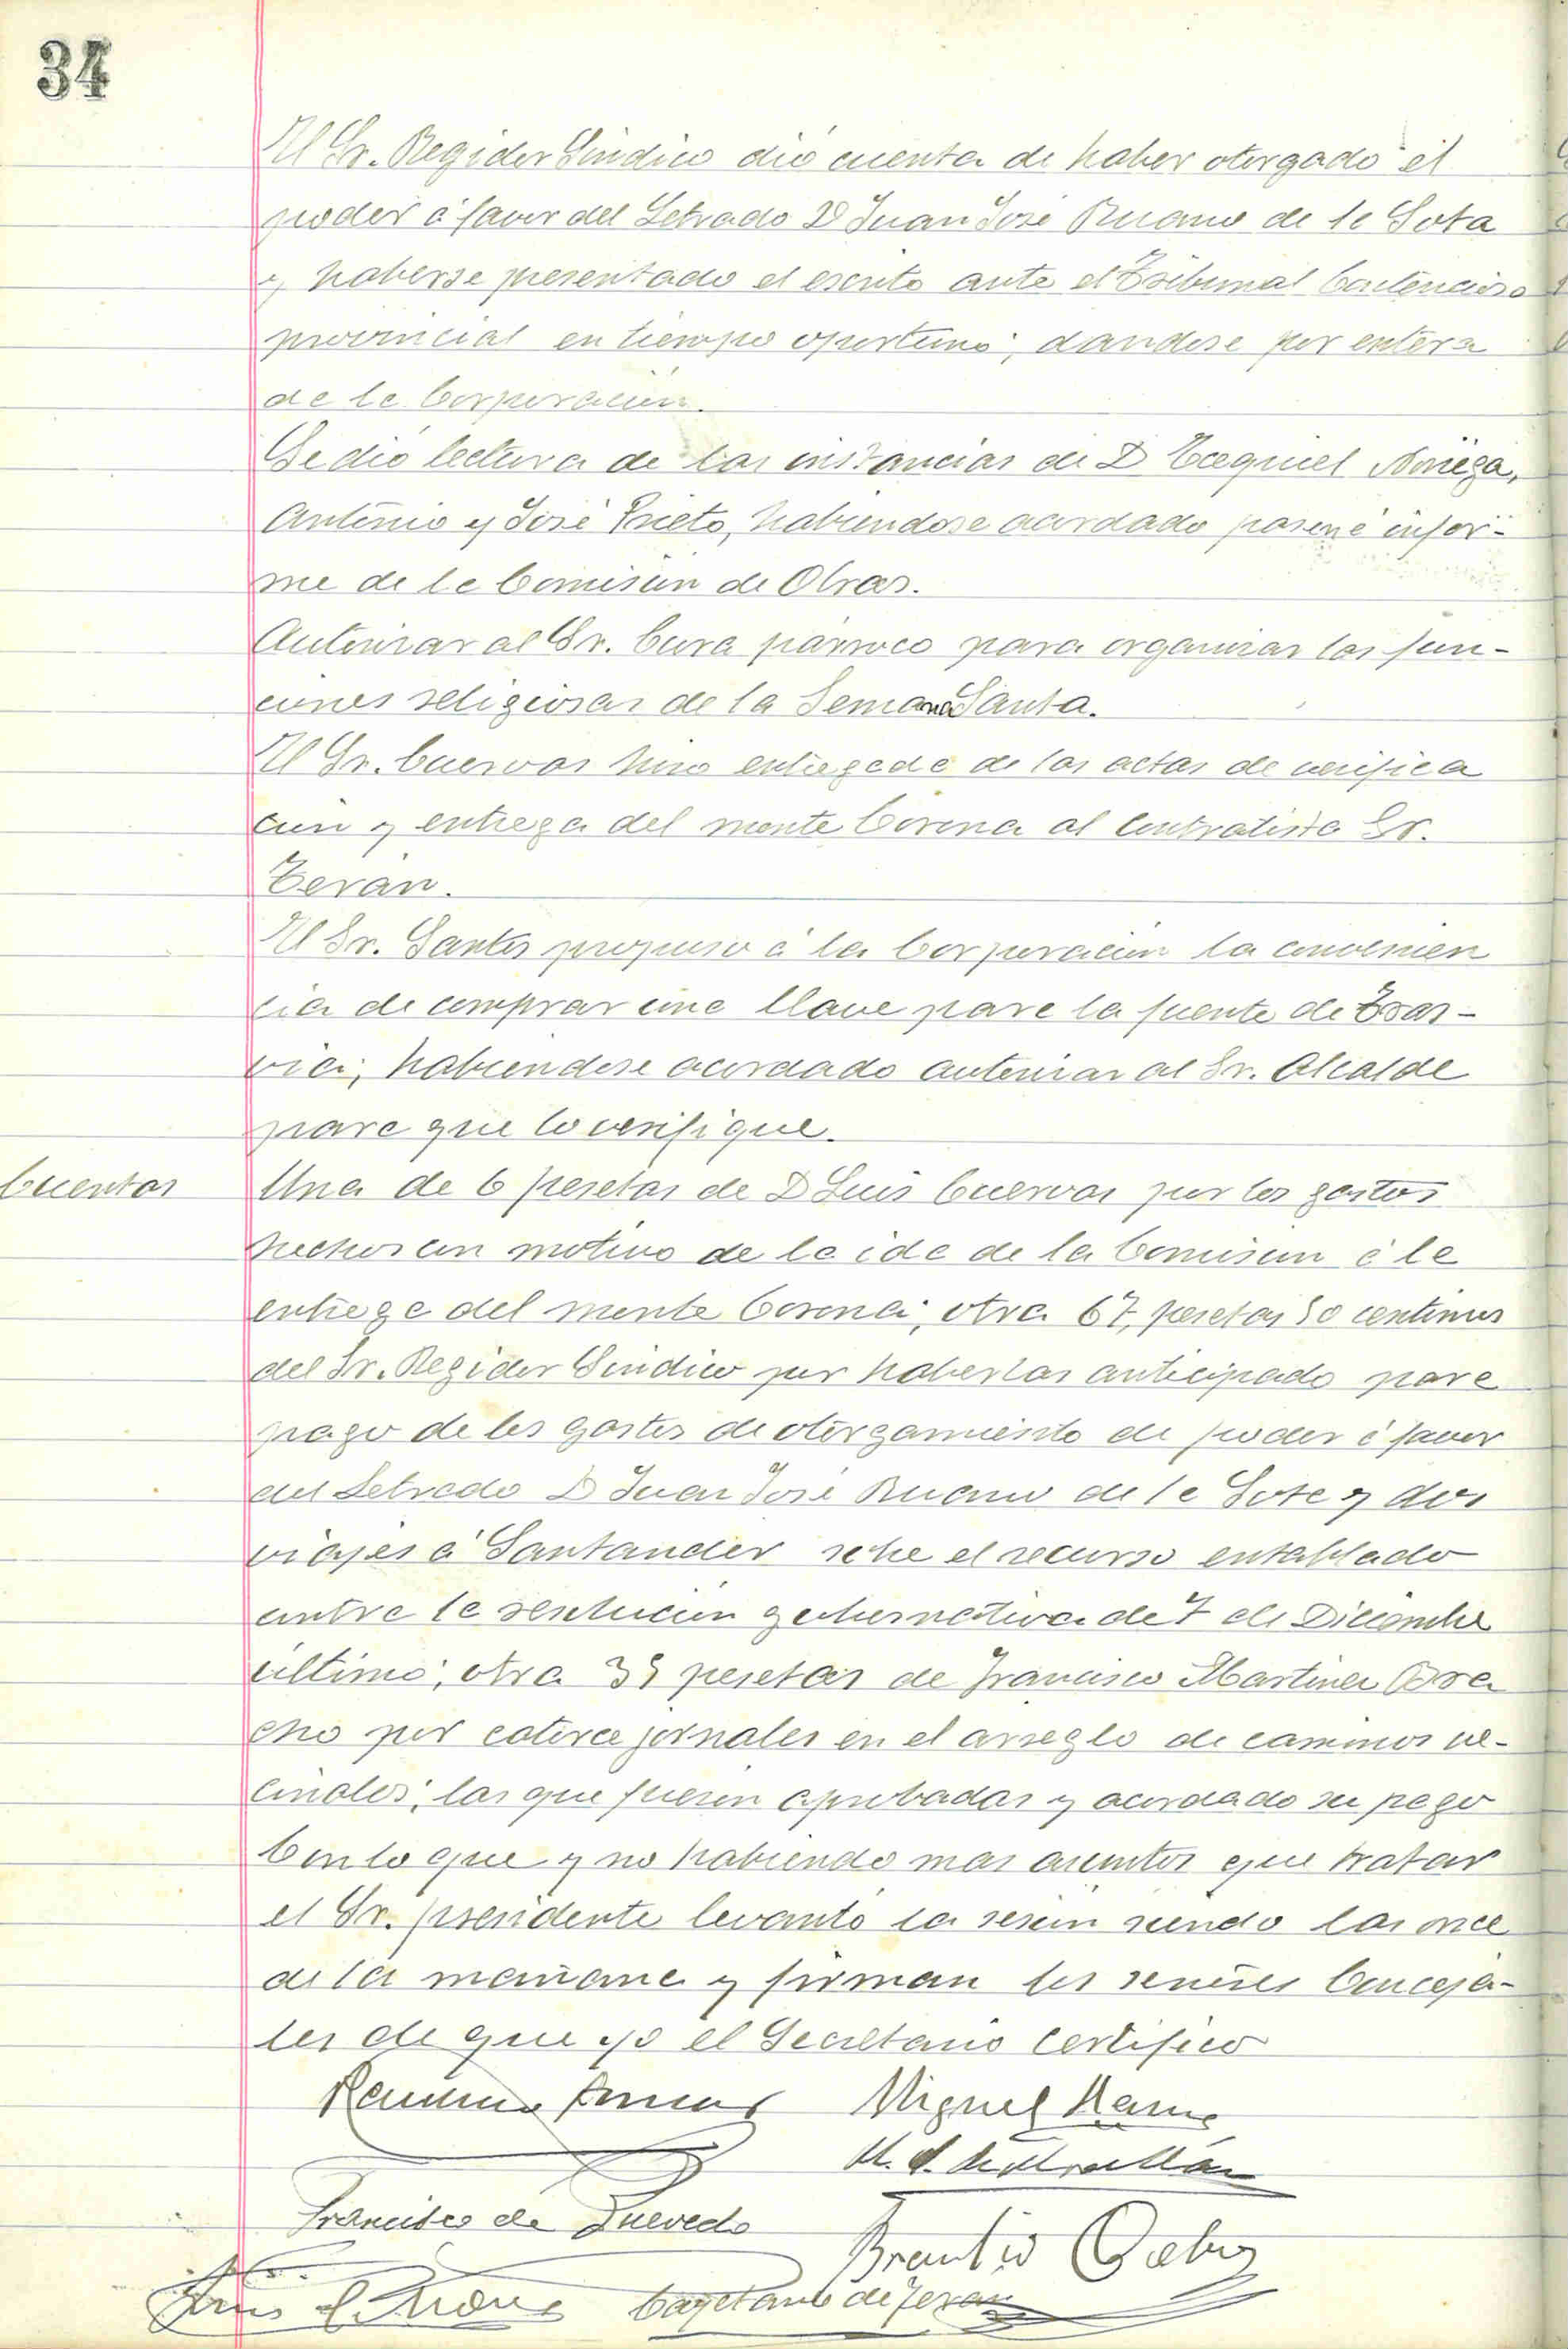 34
El Sr. Regidor Sindico dió cuenta de haber otorgado el
poder á favor del Letrado D Juan José Ruano de la Sota
y haberse presentado el escrito ante el Tribunal Contencioso
provincial en tiempo oportuno; dandose por entera
da la Corporación.
Se dió lectura de las instancias de D Ezequiel Noriega,
Antonio y José Prieto, habiendose acordado pasen á infor-
me de la Comisión de Obras.
Autorizar al Sr. Cura párroco para organizar las fun-
ciones religiosas de la Semana Santa.
El Sr. Cuervas hizo entrega de las actas de verifica
ción y entrega del monte Corona al contratista Sr.
Terán.
El Sr. Santos propuso á la Corporación la convenien
cia de comprar una llave para la fuente de Tras-
vía; habiendose acordado autorizar al Sr. Alcalde
para que lo verifique.
Cuentas
Una de 6 pesetas de D Luis Cuervas por los gastos
hechos con motivo de la ida de la Comisión á la
entrega del monte Corona; otra 67, pesetas 50 centimos
del Sr. Regidor Sindico por haberlas anticipado para
pago de los gastos de otorgamiento de poder á favor
del Letrado D Juan José Ruano de la Sota y dos
viajes á Santander sobre el recurso entablado
contra la resolución gubernativa de 7 de Diciembre
último; otra 35 pesetas de Francisco Martinez Bra
cho por catorce jornales en el arreglo de caminos ve-
cinales; las que fueron aprobadas y acordado su pago
Con lo que y no habiendo mas asuntos que tratar
el Sr. presidente levantó la sesión siendo las once
de la mañana y firman los señores Conceja-
les de que yo el Secretario certifico
Miguel
Francisco de Quevedo
Cayetano de Teran